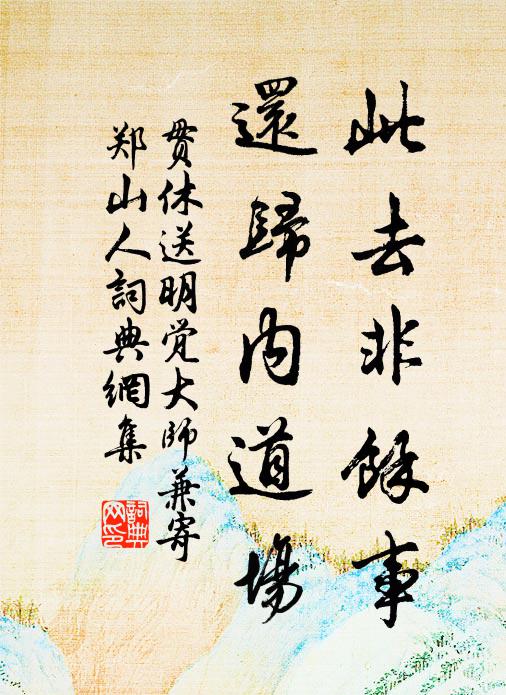 此去非餘事
還歸内道場
贯休送明觉大师兼寄
郑山人詞典網集
詞典
网印